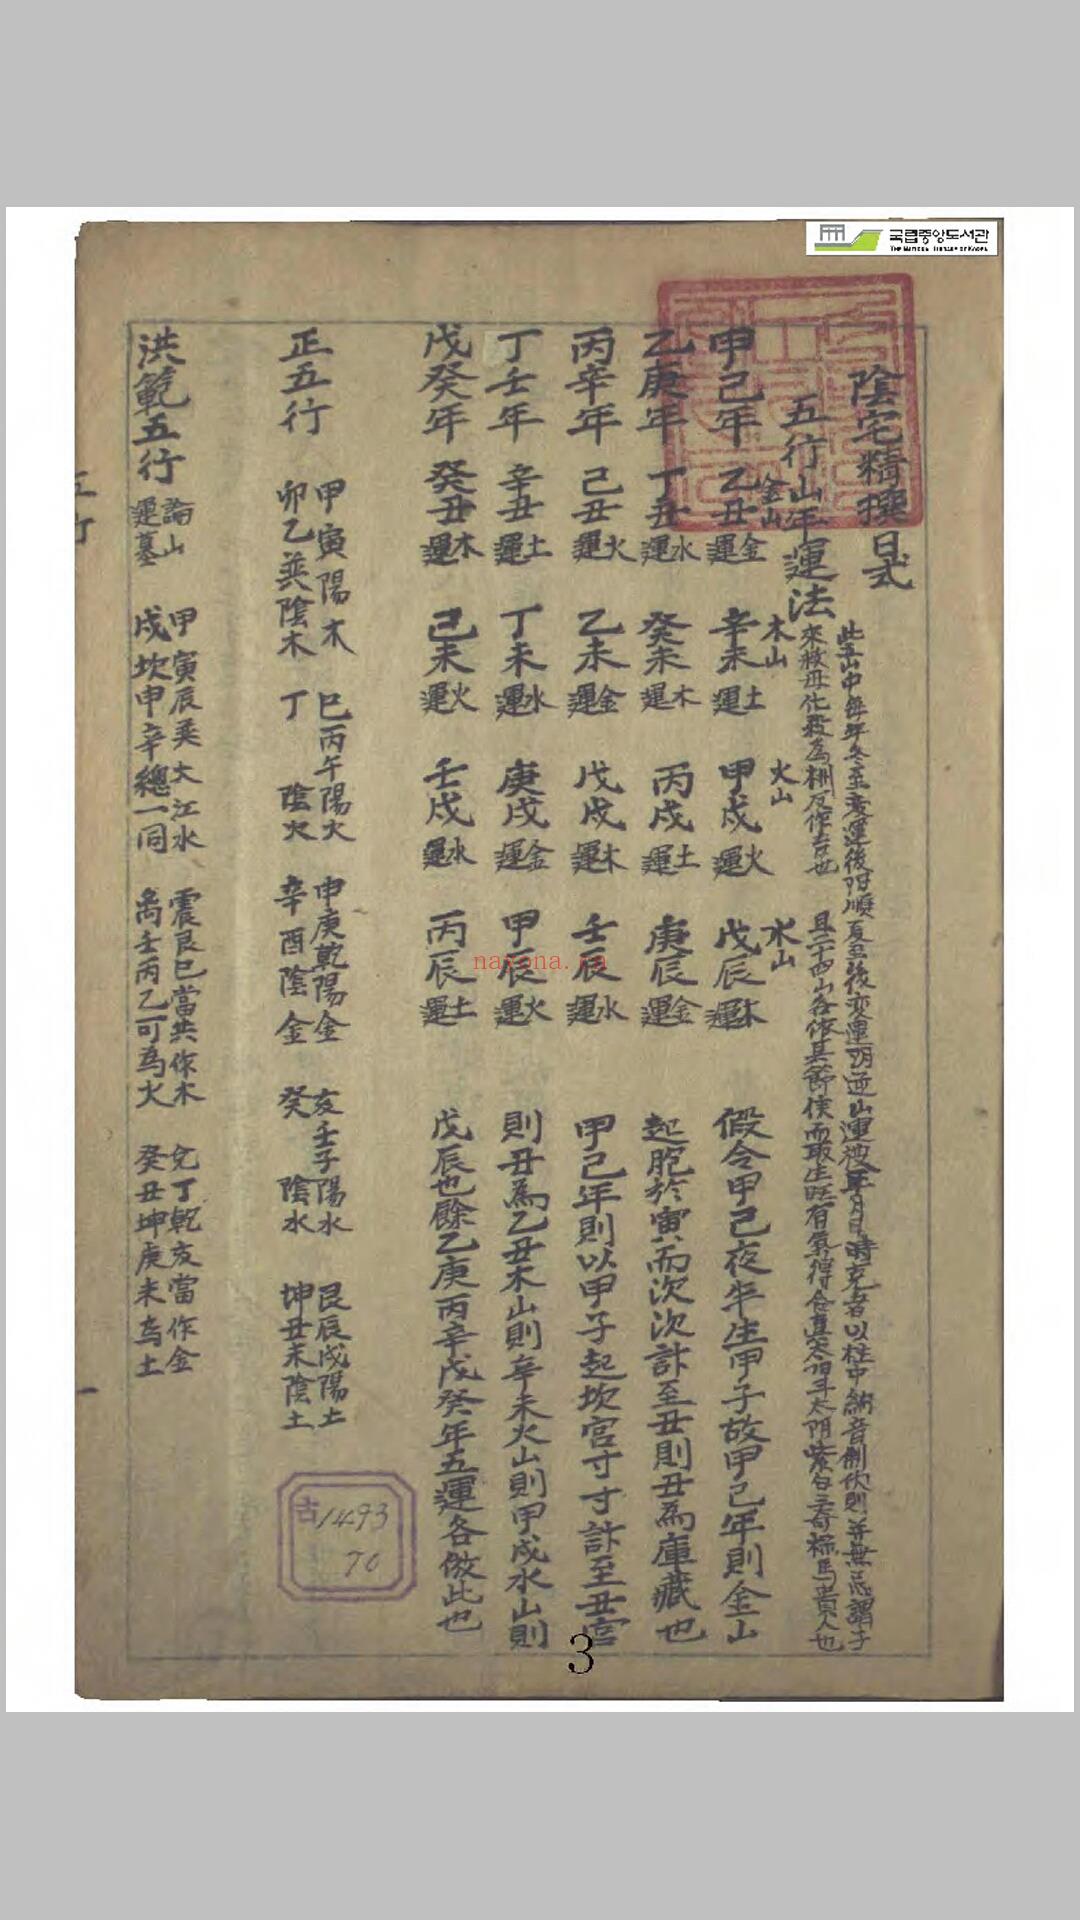 국립중앙도서관
THE NATIONAL LIBRARY OF KOREA
陰宅精撰日式
五行山年運法
此五山中每年冬至变運後阳順夏至後变運阴逆山運被年月日時克者以柱中納音制伏則並無忌謂子
來救母化殺為权反作吉也 且二十四山各依其節候而取生旺有氣得合真太阳斗太阴紫白三奇祿馬貴人也
金山 木山 火山 水山
甲己年 乙丑金運 辛未土運 甲戌火運 戊辰木運 假令甲己夜半生甲子故甲己年則金山
乙庚年 丁丑水運 癸未木運 丙戌土運 庚辰金運 起胞於寅而次次計至丑則丑為庫藏也
丙辛年 己丑火運 乙未金運 戊戌木運 壬辰水運 甲己年則以甲子起坎宮寸寸計至丑宮
丁壬年 辛丑土運 丁未水運 庚戌金運 甲辰火運 則丑為乙丑木山則辛未火山則甲戌水山則
戊癸年 癸丑木運 己未火運 壬戌水運 丙辰土運 戊辰也餘乙庚丙辛戊癸年五運各倣此也
正五行 甲寅陽木 巳丙午陽火 申庚乾陽金 亥壬子陽水 艮辰戌陽土
卯乙巽陰木 丁陰火 辛酉陰金 癸陰水 坤丑未陰土
洪範五行 論山運墓 甲寅辰巽大江水 震艮巳當共作木 兌丁乾亥當作金
戌坎申辛總一同 离壬丙乙可為火 癸丑坤庚未为土
古1493
70
nayona.ru
3